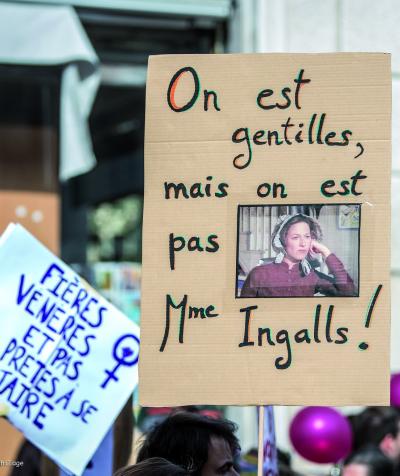 On est
gentilles,
mais on est
pas
Mme Ingalls!
FIÈRES
VENÈRES
ET PAS
PRÊTES À SE
TAIRE